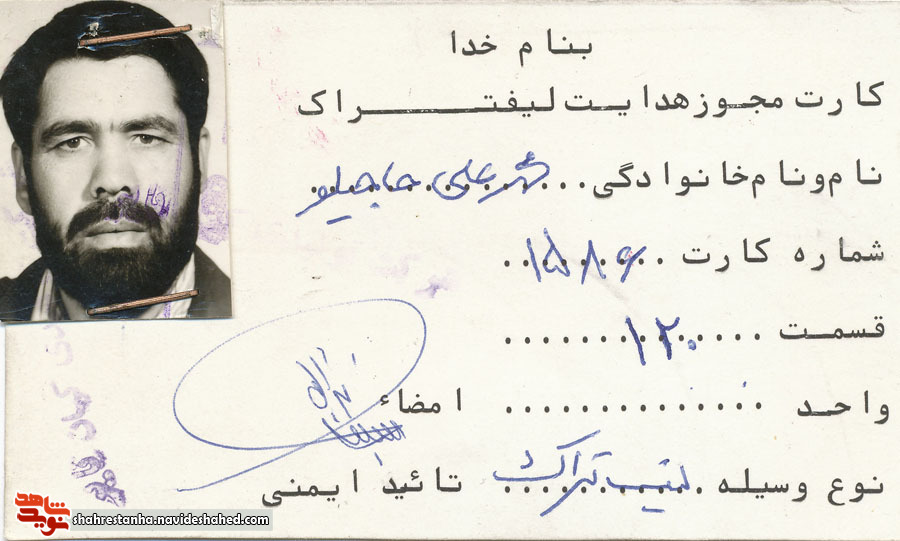 بنام خدا
کارت مجوز هدایت لیفتراک
نام و نام خانوادگی ... علی حاجیلو
شماره کارت ... ۱۵۸۶
قسمت ... ۱۲۰
واحد ... امضاء
نوع وسیله ... لیفتراک تائید ایمنی
نوید شاهد
shahrestanha.navideshahed.com